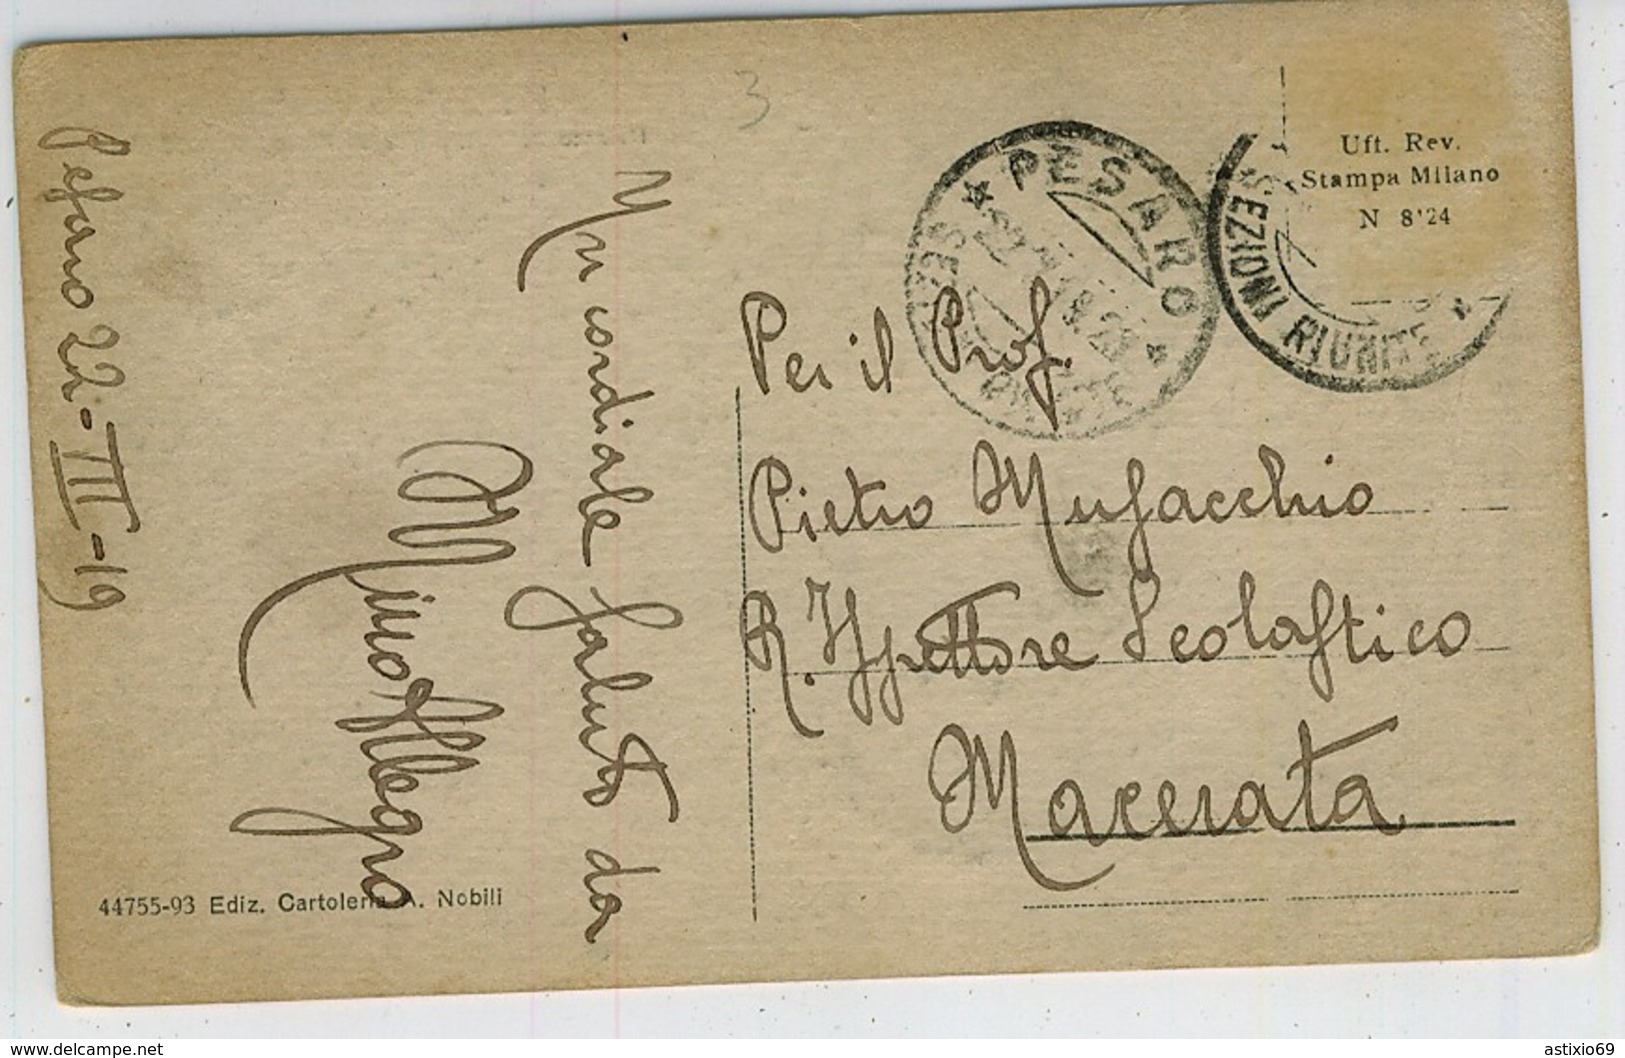 3
Pesaro 22-III-19
Un cordiale saluto da
Nino Allegro
44755-93 Ediz. Cartoleria A. Nobili
PESARO
SEZIONI RIUNITE
Uft. Rev.
Stampa Milano
N 8'24
Per il Prof.
Pietro Musacchio
R. Ispettore Scolastico
Macerata
www.delcampe.net
astixio69